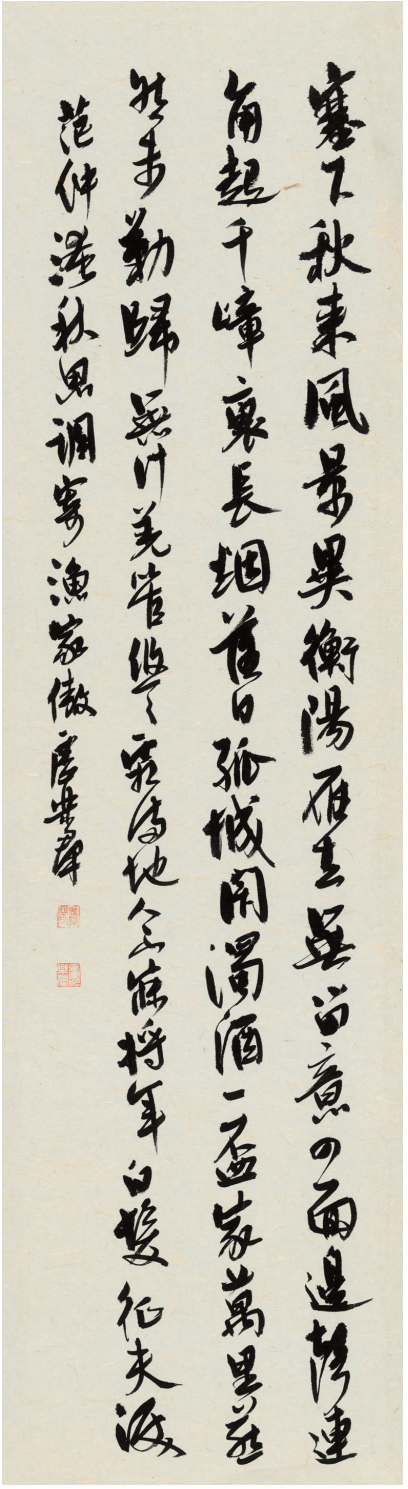 塞下秋来風景異衡陽雁去無留意四面邊聲連
角起千嶂裏長烟落日孤城閉濁酒一盃家萬里燕
然未勒歸無計羌管悠々霜满地人不寐將軍白髮征夫淚
范仲淹秋思調寄漁家傲